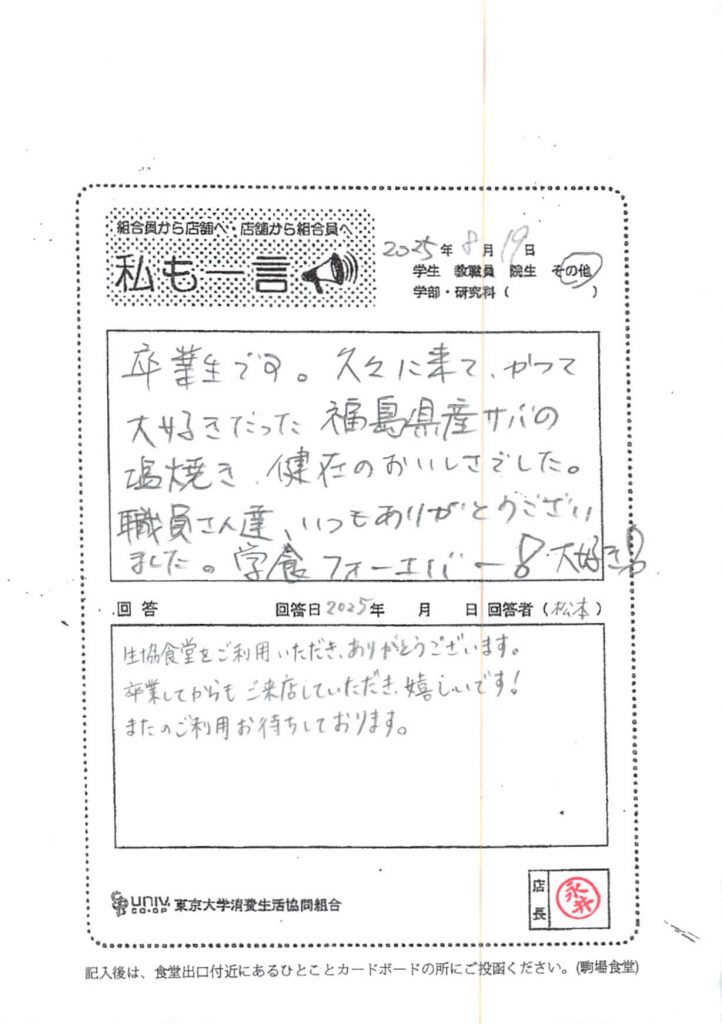 組合員から店舗へ・店舗から組合員へ
私も一言
2025年 8月 19日
学生 教職員 院生 その他
学部・研究科( )
卒業生です。久々に来て、かつて
大好きだった 福島県産サバの
塩焼き、健在のおいしさでした。
職員さん達、いつもありがとうござい
ました。学食フォーエバー!大好き!
回答 回答日2025年 月 日 回答者(松本)
生協食堂をご利用いただき、ありがとうございます。
卒業してからも ご来店していただき、嬉しいです!
またのご利用お待ちしております。
UNIV.
CO-OP 東京大学消費生活協同組合
店長
記入後は、食堂出口付近にあるひとことカードボードの所にご投函ください。(駒場食堂)